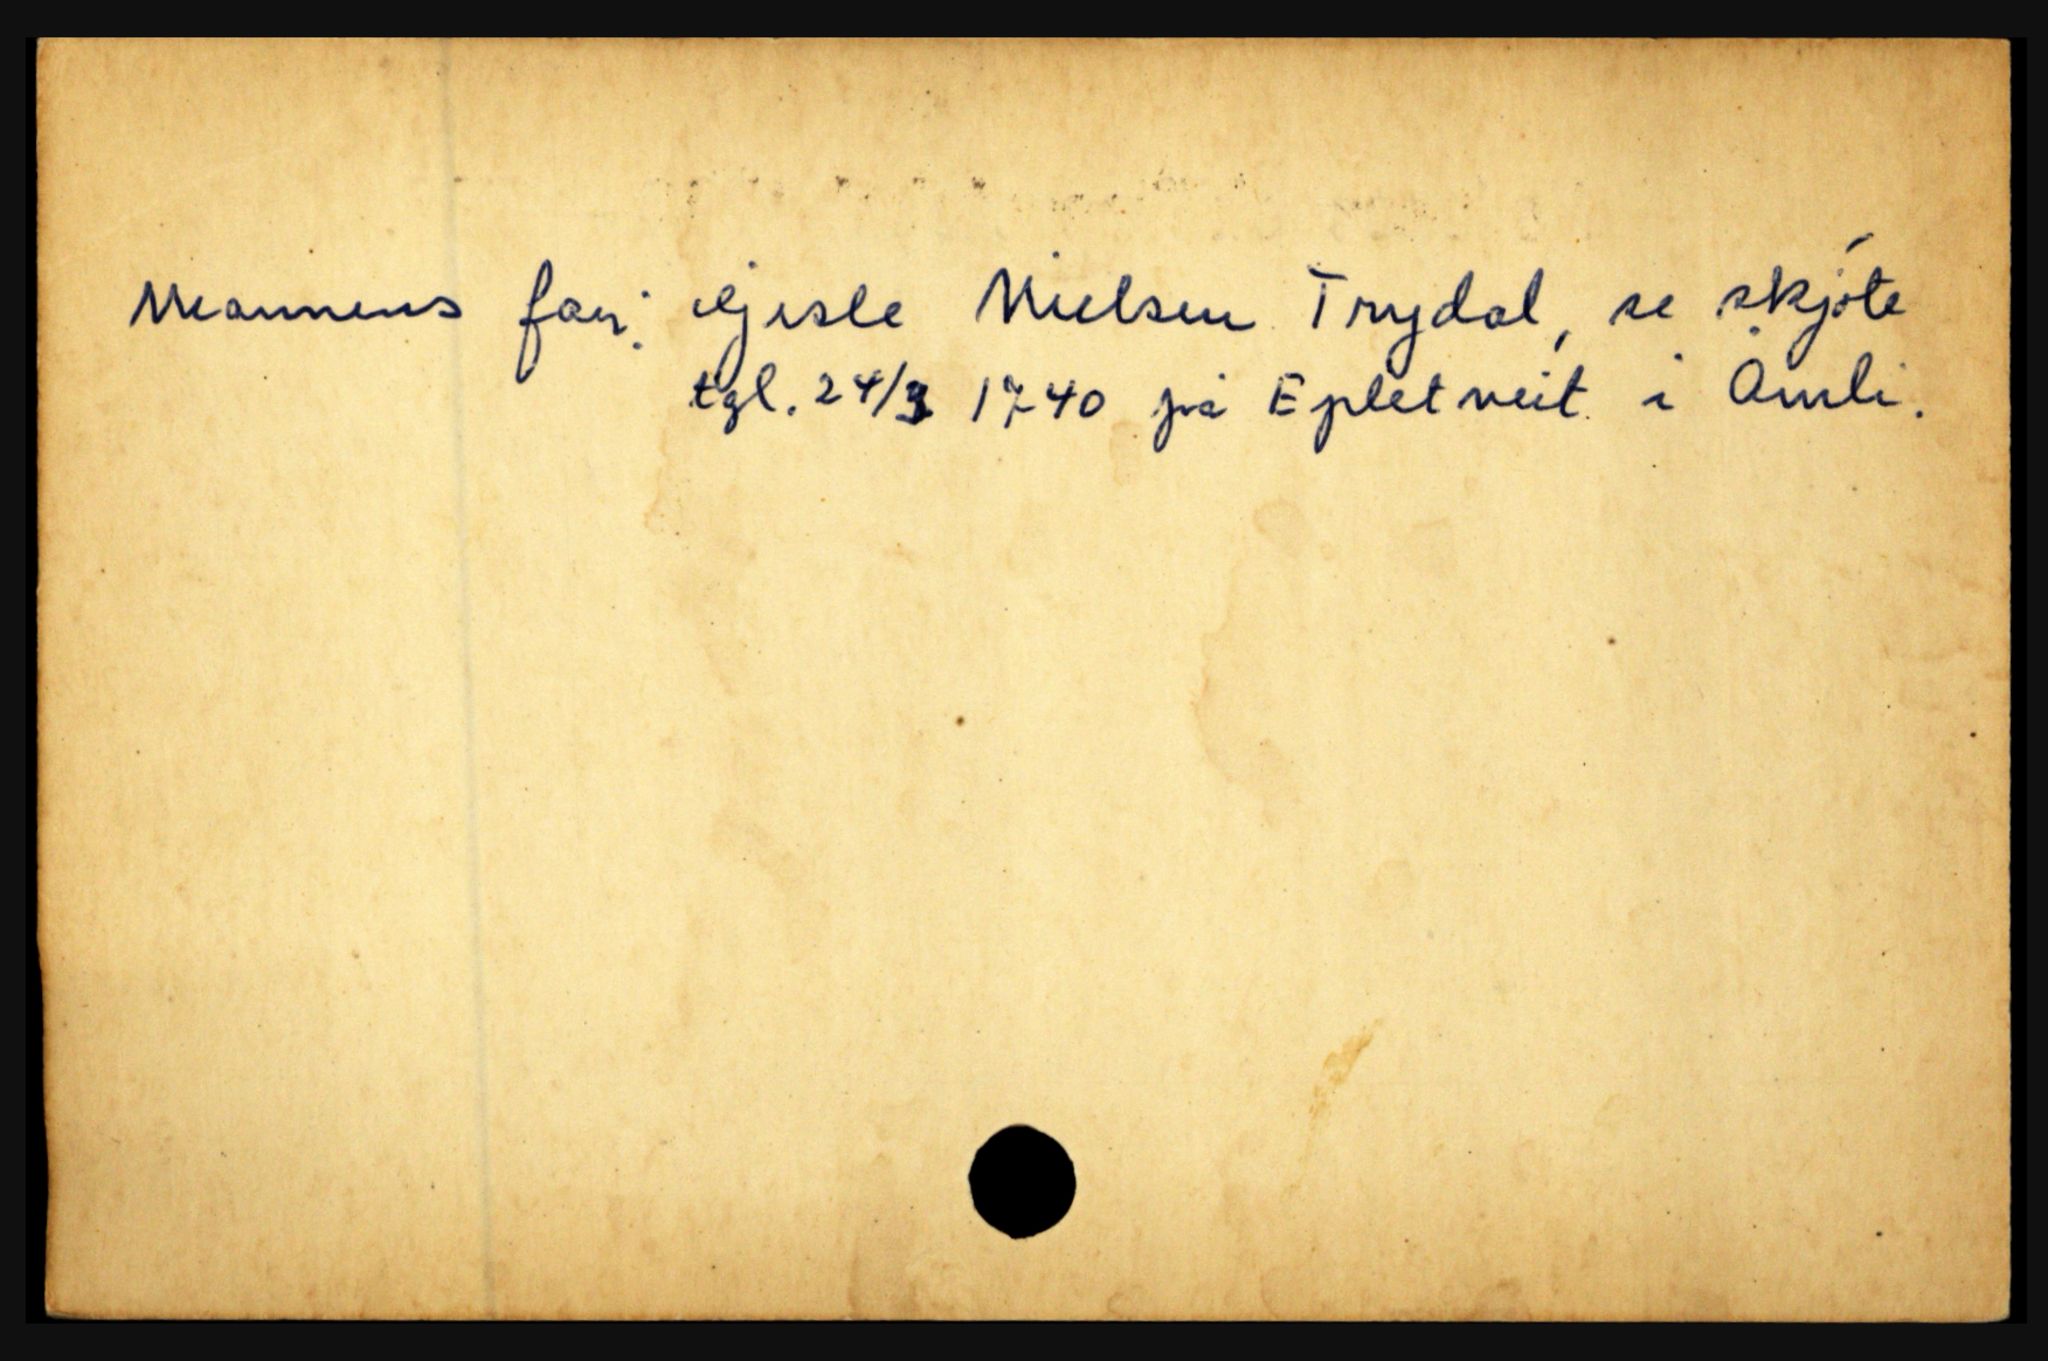 Mannens far: Gjisle Nielsen Trydal, se skjøte
tgl. 24/3 1740 på Epletveit i Åmli.